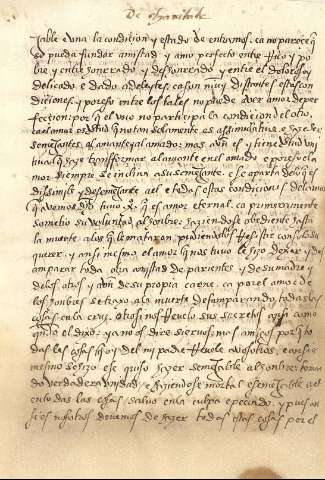 De charitate
table e una la condicion y estado de entramos, ca no parece q
se pueda fundar amistad y amor perfecto entre Rico y po
bre y entre honrrado y deshonrrado y entre el doloroso y
delicado e dado a deleites, ca son muy distantes estas con
diciones y por eso entre los tales no puede aver amor de per
feccion: por q el uno no participa la condicion del otro,
ca el amor es virtud q no tan solamente es assimilativa e haze los
semejantes al amante y al amado: mas aun es y tiene virtud un
itiva q haze transformar al ayante en el amado e por eso el a
mor siempre se inclina a su semejante e se aparta de lo q es
dissimile y desemejante a el e todas estas condiciones del amor
q avemos dicho tuvo X. q es amor eternal, ca primeramente
sometio su voluntad al honbre haziendose obediente hasta
la muerte a los q le matavan, pudiendoles Resistir con solo su
querer. y ansi mesmo el amor q nos tuvo le hizo dexar y des
amparar toda otra amistad de parientes y de su madre y
de los otros y aun de su propia carne, ca por el amor de
los honbres se traxo a la muerte desamparando todas las
cosas en la cruz. Otrosi nos Revelo sus secretos asi como
quando el dixo: ya no os dire siervos mas amigos por q to
das las cosas q oy del mi padre Revele a vosotros, e ansi
mesmo se hizo e se quiso hazer semejable al honbre toma
da verdadera unidad e haziendose mortal e semejable a el
en todas las cosas salvo en la culpa e pecado. y pues an
si es nosotros devemos de hazer todas estas cosas por el